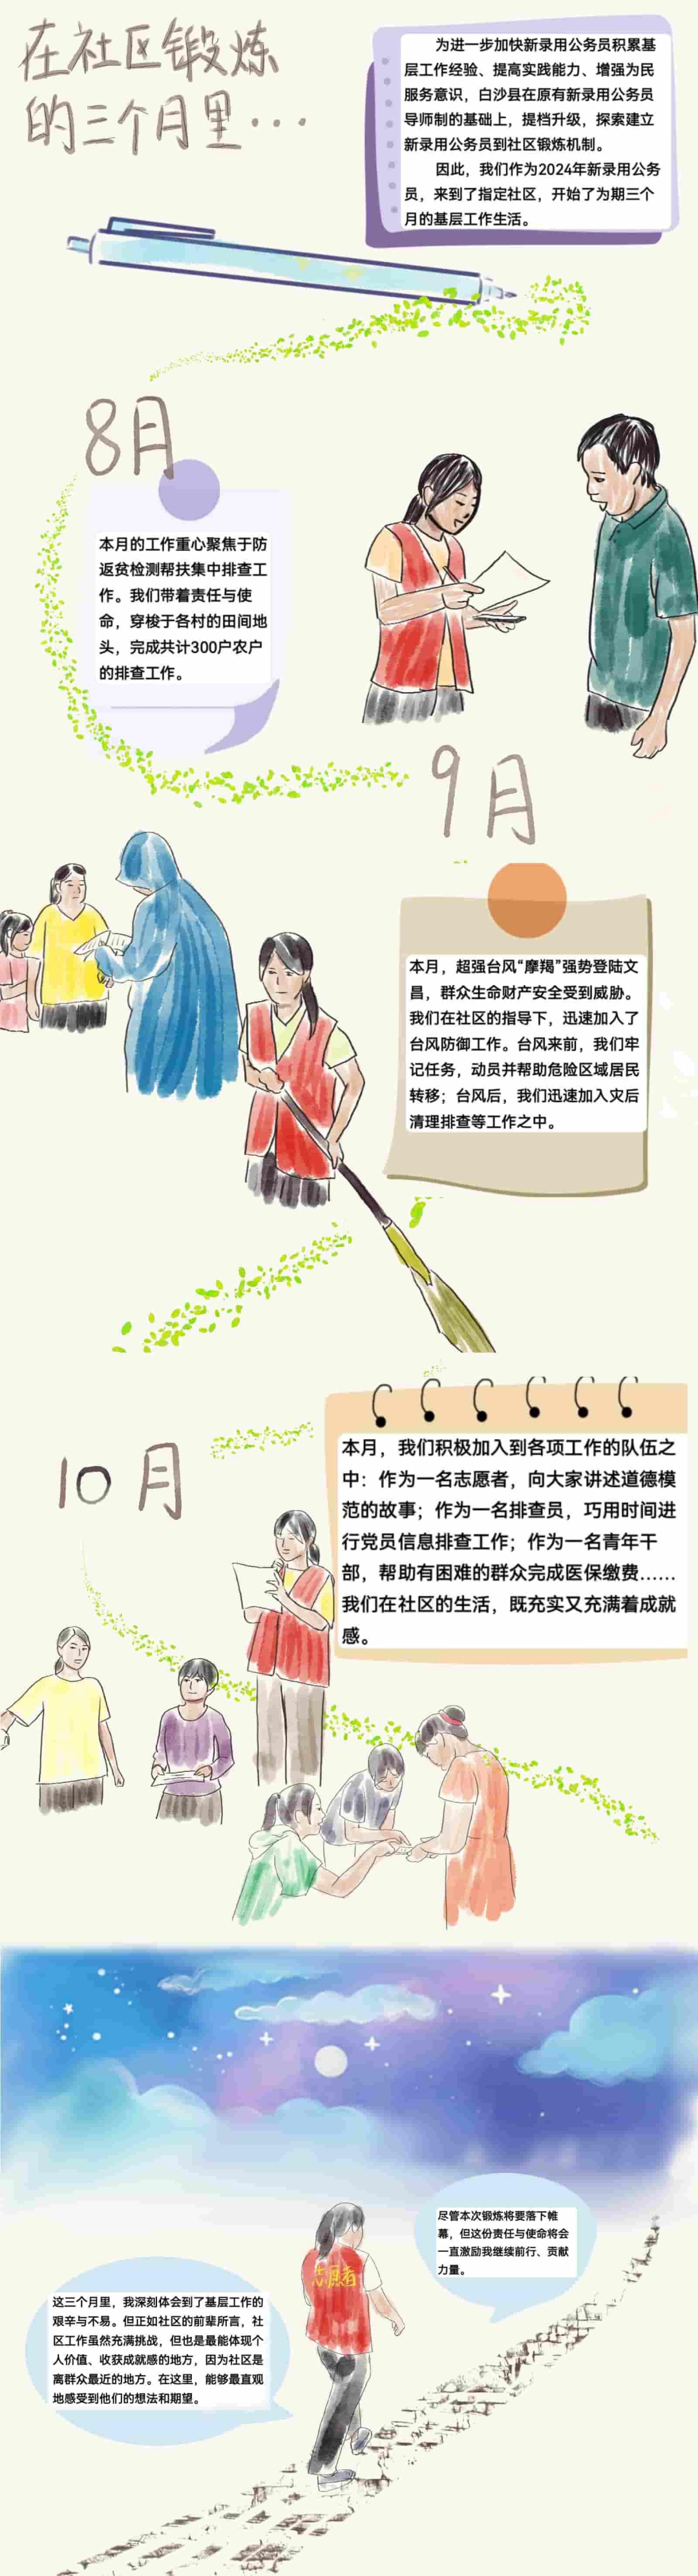 在社区锻炼
的三个月里…
为进一步加快新录用公务员积累基
层工作经验、提高实践能力、增强为民
服务意识，白沙县在原有新录用公务员
导师制的基础上，提档升级，探索建立
新录用公务员到社区锻炼机制。
因此，我们作为2024年新录用公务
员，来到了指定社区，开始了为期三个
月的基层工作生活。
8月
本月的工作重心聚焦于防
返贫检测帮扶集中排查工
作。我们带着责任与使
命，穿梭于各村的田间地
头，完成共计300户农户
的排查工作。
9月
本月，超强台风“摩羯”强势登陆文
昌，群众生命财产安全受到威胁。
我们在社区的指导下，迅速加入了
台风防御工作。台风来前，我们牢
记任务，动员并帮助危险区域居民
转移；台风后，我们迅速加入灾后
清理排查等工作之中。
10月
本月，我们积极加入到各项工作的队伍之
中：作为一名志愿者，向大家讲述道德模
范的故事；作为一名排查员，巧用时间进
行党员信息排查工作；作为一名青年干
部，帮助有困难的群众完成医保缴费……
我们在社区的生活，既充实又充满着成就
感。
尽管本次锻炼将要落下帷
幕，但这份责任与使命将会
一直激励我继续前行、贡献
力量。
志愿者
这三个月里，我深刻体会到了基层工作的
艰辛与不易。但正如社区的前辈所言，社
区工作虽然充满挑战，但也是最能体现个
人价值、收获成就感的地方，因为社区是
离群众最近的地方。在这里，能够最直观
地感受到他们的想法和期望。